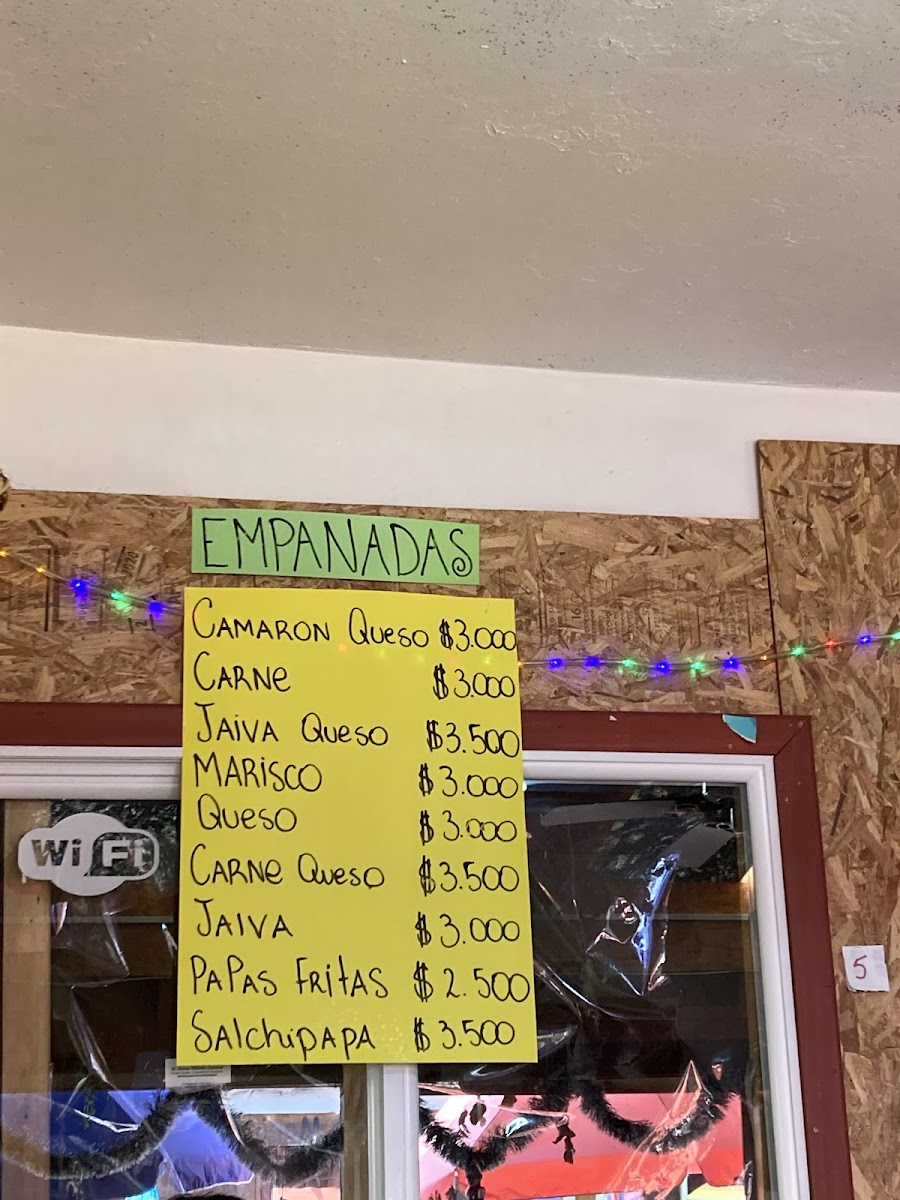 EMPANADAS
CAMARON Queso $3.000
CARNe $3.000
JAIVA Queso $3.500
MARISCO $3.000
Queso $3.000
CARNe Queso $3.500
JAIVA $3.000
PAPAS FRitAS $2.500
SAlchiPAPA $3.500
Wi Fi
5